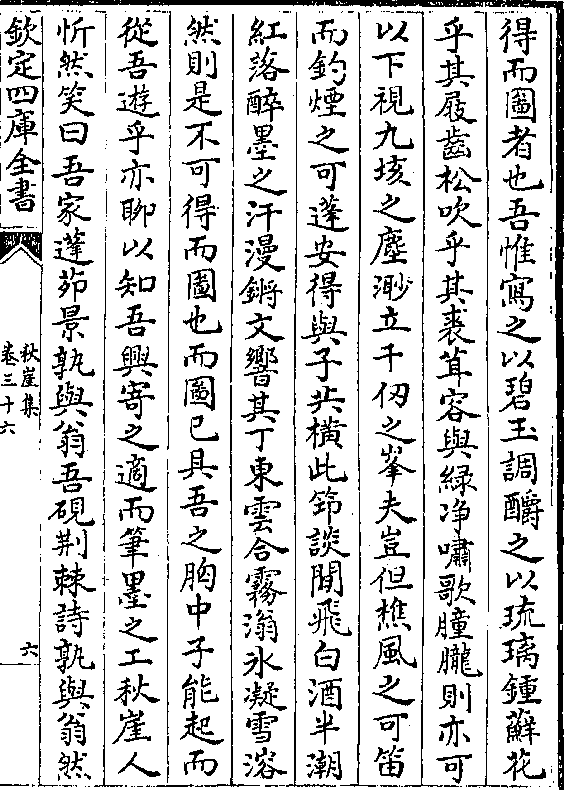 得而圖者也吾惟寫之以碧玉調酹之以琉璃鍾蘚花
乎其屐齒松吹乎其裘茸容與緑净嘯歌朣朧則亦可
以下視九垓之塵渺立千仭之峯夫豈但樵風之可笛
而釣煙之可蓬安得與子共横此笻談閒飛白酒半潮
紅落醉墨之汗漫鏘文響其丁東雲合霧滃氷凝雪溶
然則是不可得而圖也而圖已具吾之胸中子能起而
從吾遊乎亦聊以知吾興寄之適而筆墨之工秋崖人
忻然笑曰吾家蓬茆景孰與翁吾硯荆棘詩孰與翁然
欽定四庫全書
秋崖集
卷三十六
六